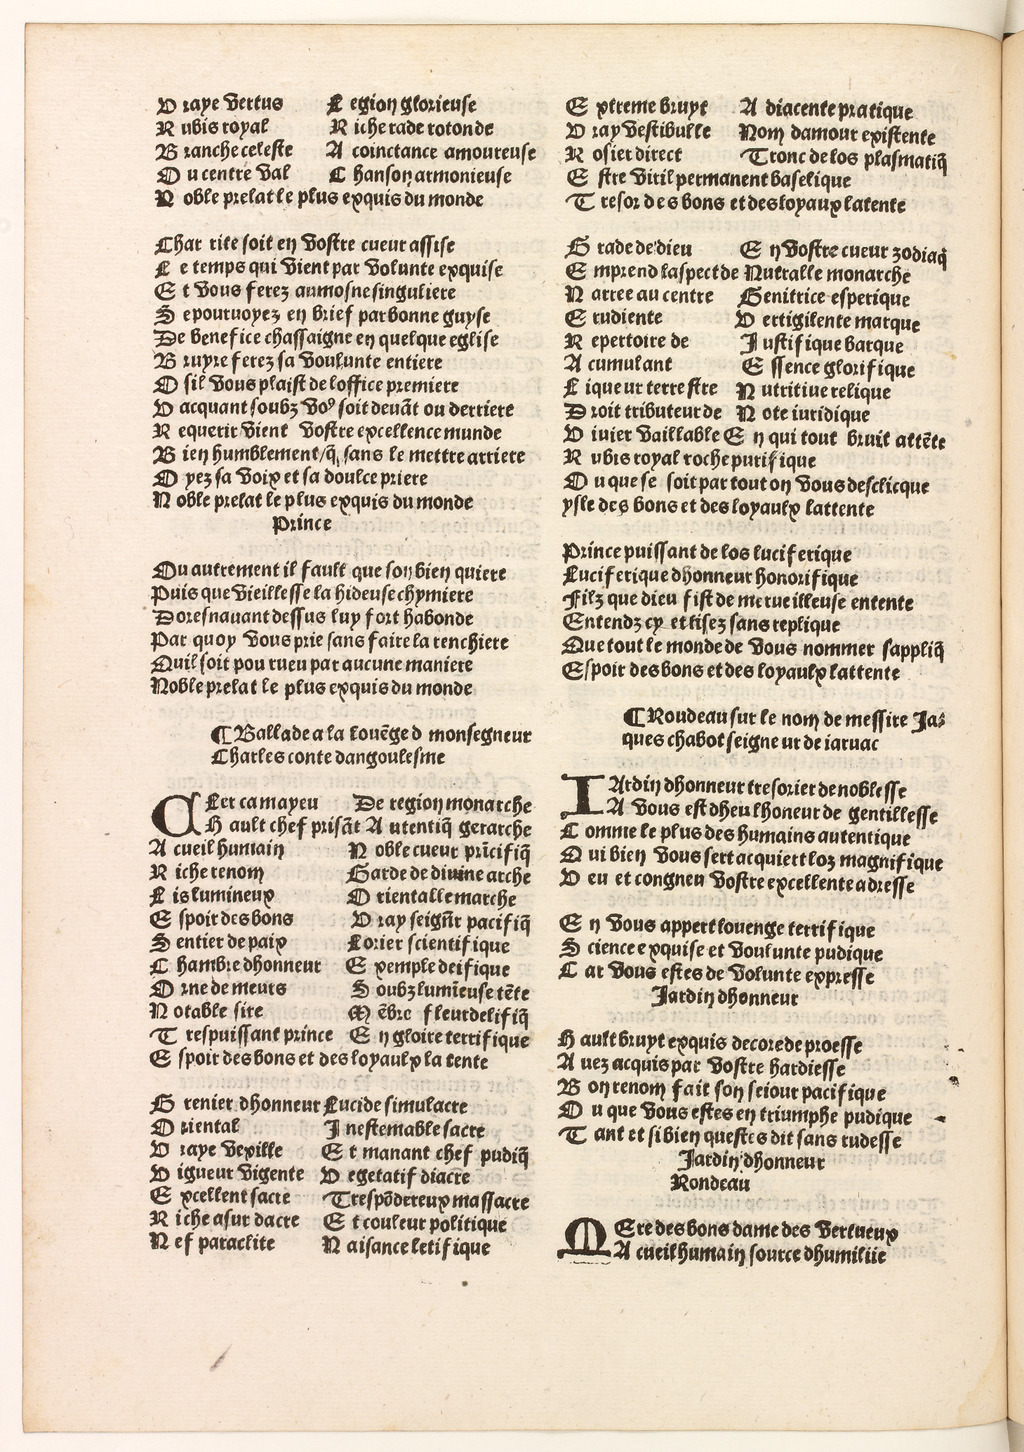 V raye vertus L egion glorieuse
R ubis royal R iche rade rotonde
B ranche celeste A cointance amoureuse
D u centre val C hanson armonieuse
N oble prelat le plus exquis du monde
Char rite soit en vostre cueur assise
L e temps qui vient par volunte exquise
E t vous ferez aumosne singuliere
S e pourvoyez en brief par bonne guyse
De benefice chassaigne en quelque eglise
B ruyre ferez sa voulunte entiere
O sil vous plaist de loffice premiere
V acquant soubz voꝰ soit devāt ou derriere
R equerir vient vostre excellence munde
B ien humblement/q̄ sans le mettre arriere
O yez sa voix et sa doulce priere
N oble prelat le plus exquis du monde
Prince
Ou autrement il fault que son bien quiere
Puis que vieillesse la hideuse chymiere
Doresnavant dessus luy fort habonde
Par quoy vous prie sans faire la renchiere
Quil soit pourueu par aucune maniere
Noble prelat le plus exquis du monde
¶ Ballade a la louēge d monsegneur
Charles conte dangoulesme
C Ler camayeu De region monarche
H ault chef prisāt A utentiq̄ gerarche
A cueil humain N oble cueur prīcifiq̄
R iche renom Garde de divine arche
L is lumineux O rientalle marche
E spoir des bons V ray seigñr pacifiq̄
S entier de paix Lorier scientifique
C hambre dhonneur E xemple deifique
O rne de meurs S oubz lumīeuse tēte
N otable sire M ēbre fleurdelifiq̄
T respuissant prince E n gloire terrifique
E spoir des bons et des loyaulx la tente
G renier dhonneur Lucide simulacre
O riental I nestemable sacre
V raye vexille E t manant chef pudiq̄
V igueur vigente V egetatif diacre
E xcellent sacre T respōdereux massacre
R iche asur dacre E t couleur politique
N ef paraclite N aisance letifique
E xtreme bruyt A diacente pratique
V ray vestibulle Nom damour existente
R osier direct Tronc de los plasmatiq̄
E stre viril permanent baselique
T resor des bons et des loyaulx latente
G rade de dieu E n vostre cueur zodiaq̄
E mprend laspect de Nutralle monarche
N arree au centre Genitrice esperique
E rudiente V ertigilente marque
R epertoire de J ustifique barque
A cumulant E ssence glorifique
L iqueur terrestre N utritive relique
D roit tributeur de N ote iuridique
V ivier vaillable E n qui tout bruit attēte
R ubis royal roche purifique
O u que se soit par tout on vous desclicque
ysle des bons et des loyaulx lattente
Prince puissant de los luciferique
Luciferique dhonneur honorifique
Filz que dieu fist de merveilleuse entente
Entendz cy et lisez sans replique
Que tout le monde de vous nommer sappliq̄
Espoir des bons et des loyaulx lattente
¶ Roudeau sur le nom de messire Ja⸗
ques chabot seigneur de iarnac
I Ardin dhonneur tresorier de noblesse
A vous est dheu lhoneur de gentillesse
C omme le plus des humains autentique
Q ui bien vous sert acquiert loz magnifique
V eu et congneu vostre excellente adresse
E n vous appert louenge terrifique
S cience exquise et voulunte pudique
C ar vous estes de volunte expresse
Jardin dhonneur
H ault bruyt exquis decore de proesse
A vez acquis par vostre hardiesse
B on renom fait son seiour pacifique
O u que vous estes en triumphe pudique
T ant et si bien questes dit sans rudesse
Jardin dhonneur
Rondeau
M Ere des bons dame des vertueux
A cueil humain source dhumilite